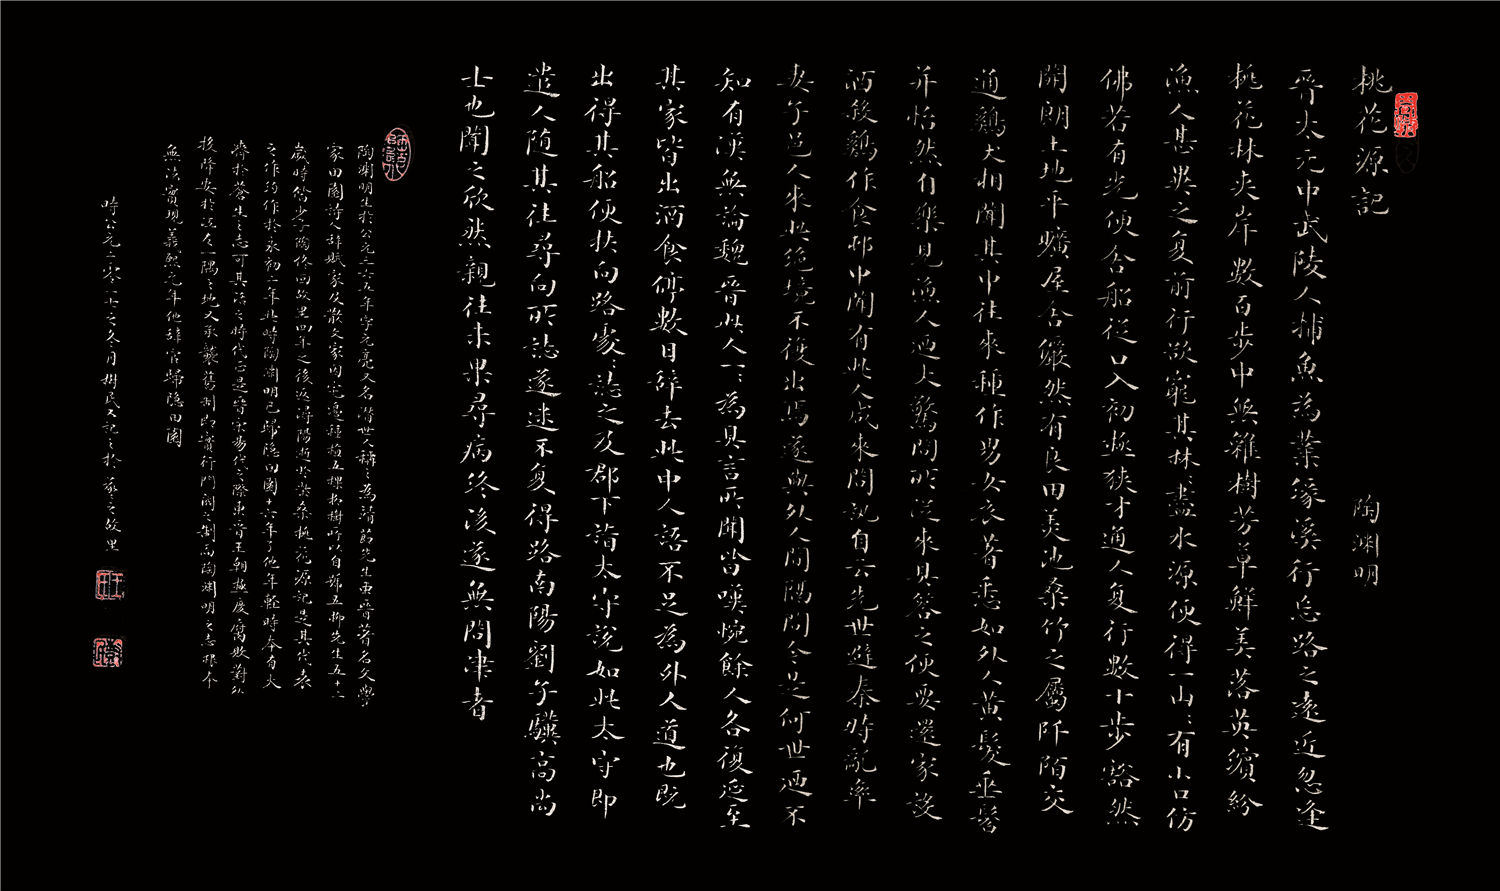 桃花源記 陶渊明
晉太元中武陵人捕魚為業缘溪行忘路之遠近忽逢
桃花林夾岸數百步中無雜樹芳草鮮美落英缤紛
漁人甚異之复前行欲窮其林々盡水源便得一山々有小口仿
佛若有光便舍船從口入初极狭才通人复行數十步豁然
開朗土地平曠屋舍儼然有良田美池桑竹之屬阡陌交
通鷄犬相聞其中往來種作男女衣著悉如外人黄髮垂髫
并怡然自樂見漁人迺大驚問所從來具答之便要還家設
酒殺鷄作食邨中聞有此人咸來問訊自云先世避秦時亂率
妻子邑人來此絶境不復出焉遂與外人間隔問今是何世迺不
知有漢無論魏晉此人一々為具言所聞皆嘆惋餘人各復延至
其家皆出酒食停數日辞去此中人語不足為外人道也既
出得其船便扶向路處々誌之及郡下詣太守說如此太守即
遣人随其往尋向所誌遂迷不复得路南陽劉子驥高尚
士也聞之欣然親往未果尋病终後遂無問津者
陶渊明生於公元三六五年字元亮又名潜世人稱之為靖節先生東晉著名文學
家田園詩人辞賦家及散文家因宅邊種植五棵柳樹所以自號五柳先生五十二
歲時當少子陶佟回故里四年之後返潯陽逝於柴桑桃花源記是其代表
之作約作於永初二年此時陶渊明已歸隐田園十六年了他年輕時本有大
濟於蒼生之志可其活之時代正是晉宋易代之際東晉王朝極度腐敗對外
投降安於江左一隅之地又承襲舊制而實行門阀之制而陶渊明之志根本
無法實現義熙元年他辞官歸隐田園
時公元二零一七之冬月樹民又記之於